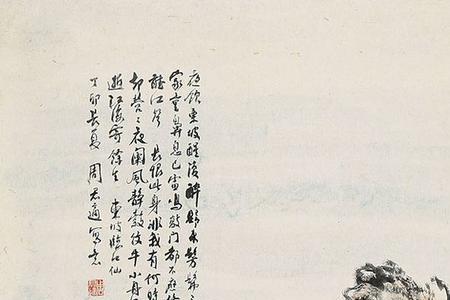 夜飲東坡醒復醉歸來髣髴
家童鼻息已雷鳴敲門都不應倚
聽江聲 長恨此身非我有何時
却營々夜闌風靜縠紋平小舟
逝江海寄餘生 東坡臨江仙
丁卯長夏 周君適寫意